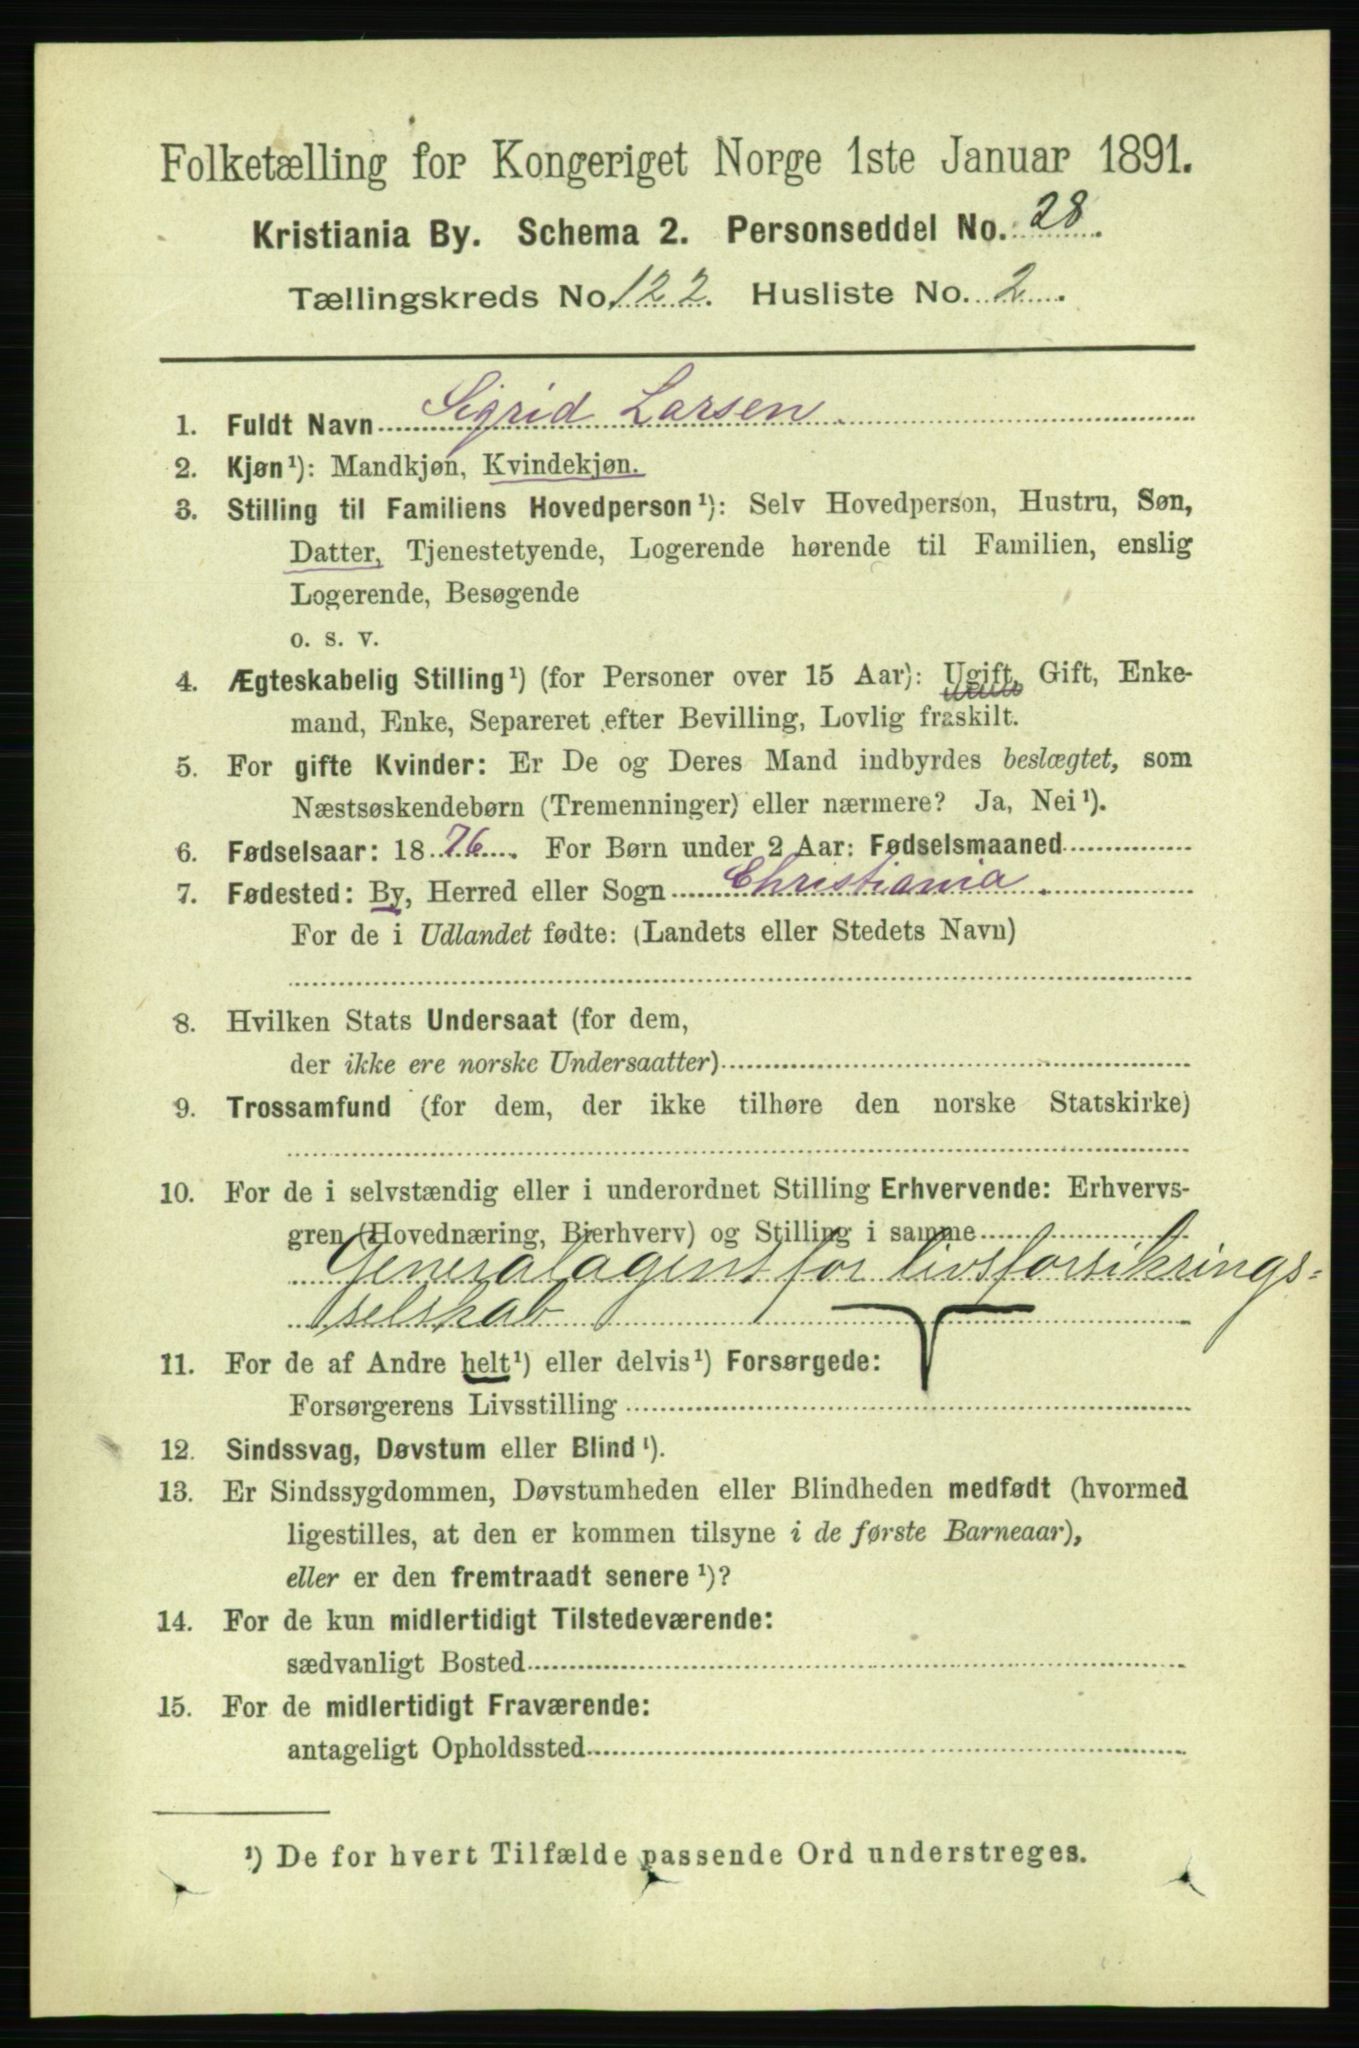 Folketælling for Kongeriget Norge 1ste Januar 1891.
Kristiania By. Schema 2. Personseddel No. 28.
Tællingskreds No. 122. Husliste No. 2.
1. Fuldt Navn Sigrid Larsen.
2. Kjøn¹): Mandkjøn, Kvindekjøn.
3. Stilling til Familiens Hovedperson¹): Selv Hovedperson, Hustru, Søn,
Datter, Tjenestetyende, Logerende hørende til Familien, enslig
Logerende, Besøgende
o. s. v.
4. Ægteskabelig Stilling¹) (for Personer over 15 Aar): Ugift, Gift, Enke-
mand, Enke, Separeret efter Bevilling, Lovlig fraskilt.
5. For gifte Kvinder: Er De og Deres Mand indbyrdes beslægtet, som
Næstsøskendebørn (Tremenninger) eller nærmere? Ja, Nei¹).
6. Fødselsaar: 1876. For Børn under 2 Aar: Fødselsmaaned
7. Fødested: By, Herred eller Sogn Christiania.
For de i Udlandet fødte: (Landets eller Stedets Navn)
8. Hvilken Stats Undersaat (for dem,
der ikke ere norske Undersaatter)
9. Trossamfund (for dem, der ikke tilhøre den norske Statskirke)
10. For de i selvstændig eller i underordnet Stilling Erhvervende: Erhvervs-
gren (Hovednæring, Bierhverv) og Stilling i samme
Generalagent for livsforsikrings-
selskab
11. For de af Andre helt¹) eller delvis¹) Forsørgede:
Forsørgerens Livsstilling
12. Sindssvag, Døvstum eller Blind¹).
13. Er Sindssygdommen, Døvstumheden eller Blindheden medfødt (hvormed
ligestilles, at den er kommen tilsyne i de første Barneaar),
eller er den fremtraadt senere¹)?
14. For de kun midlertidigt Tilstedeværende:
sædvanligt Bosted
15. For de midlertidigt Fraværende:
antageligt Opholdssted
¹) De for hvert Tilfælde passende Ord understreges.